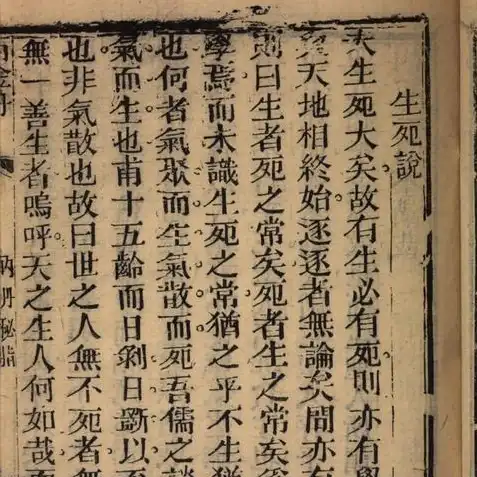 生死說
夫生死大矣。故有生必有死。則亦有學
天地相終始。逐逐者無論矣。間亦有
則曰生者死之常矣。死者生之常矣。
學焉。而未識生死之常。猶之乎不生猶
也。何者。氣聚而生。氣散而死。吾儒之談
氣而生也。甫十五齡而日剝日斵。以
也。非氣散也。故曰世之人無不死者。無
無一善生者。嗚呼。天之生人何如哉。
金丹
內丹秘指